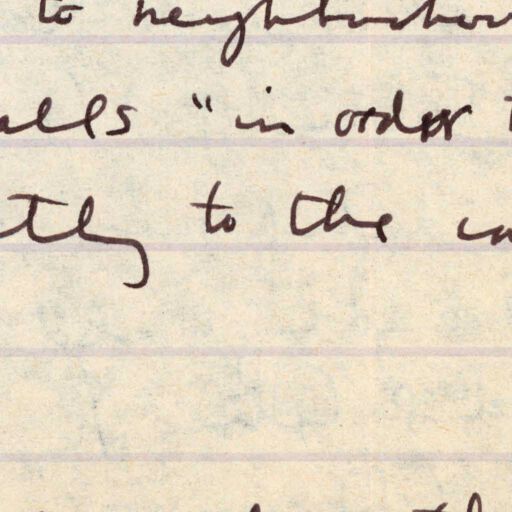 to neighborhoo
alls "in order t
tly to the